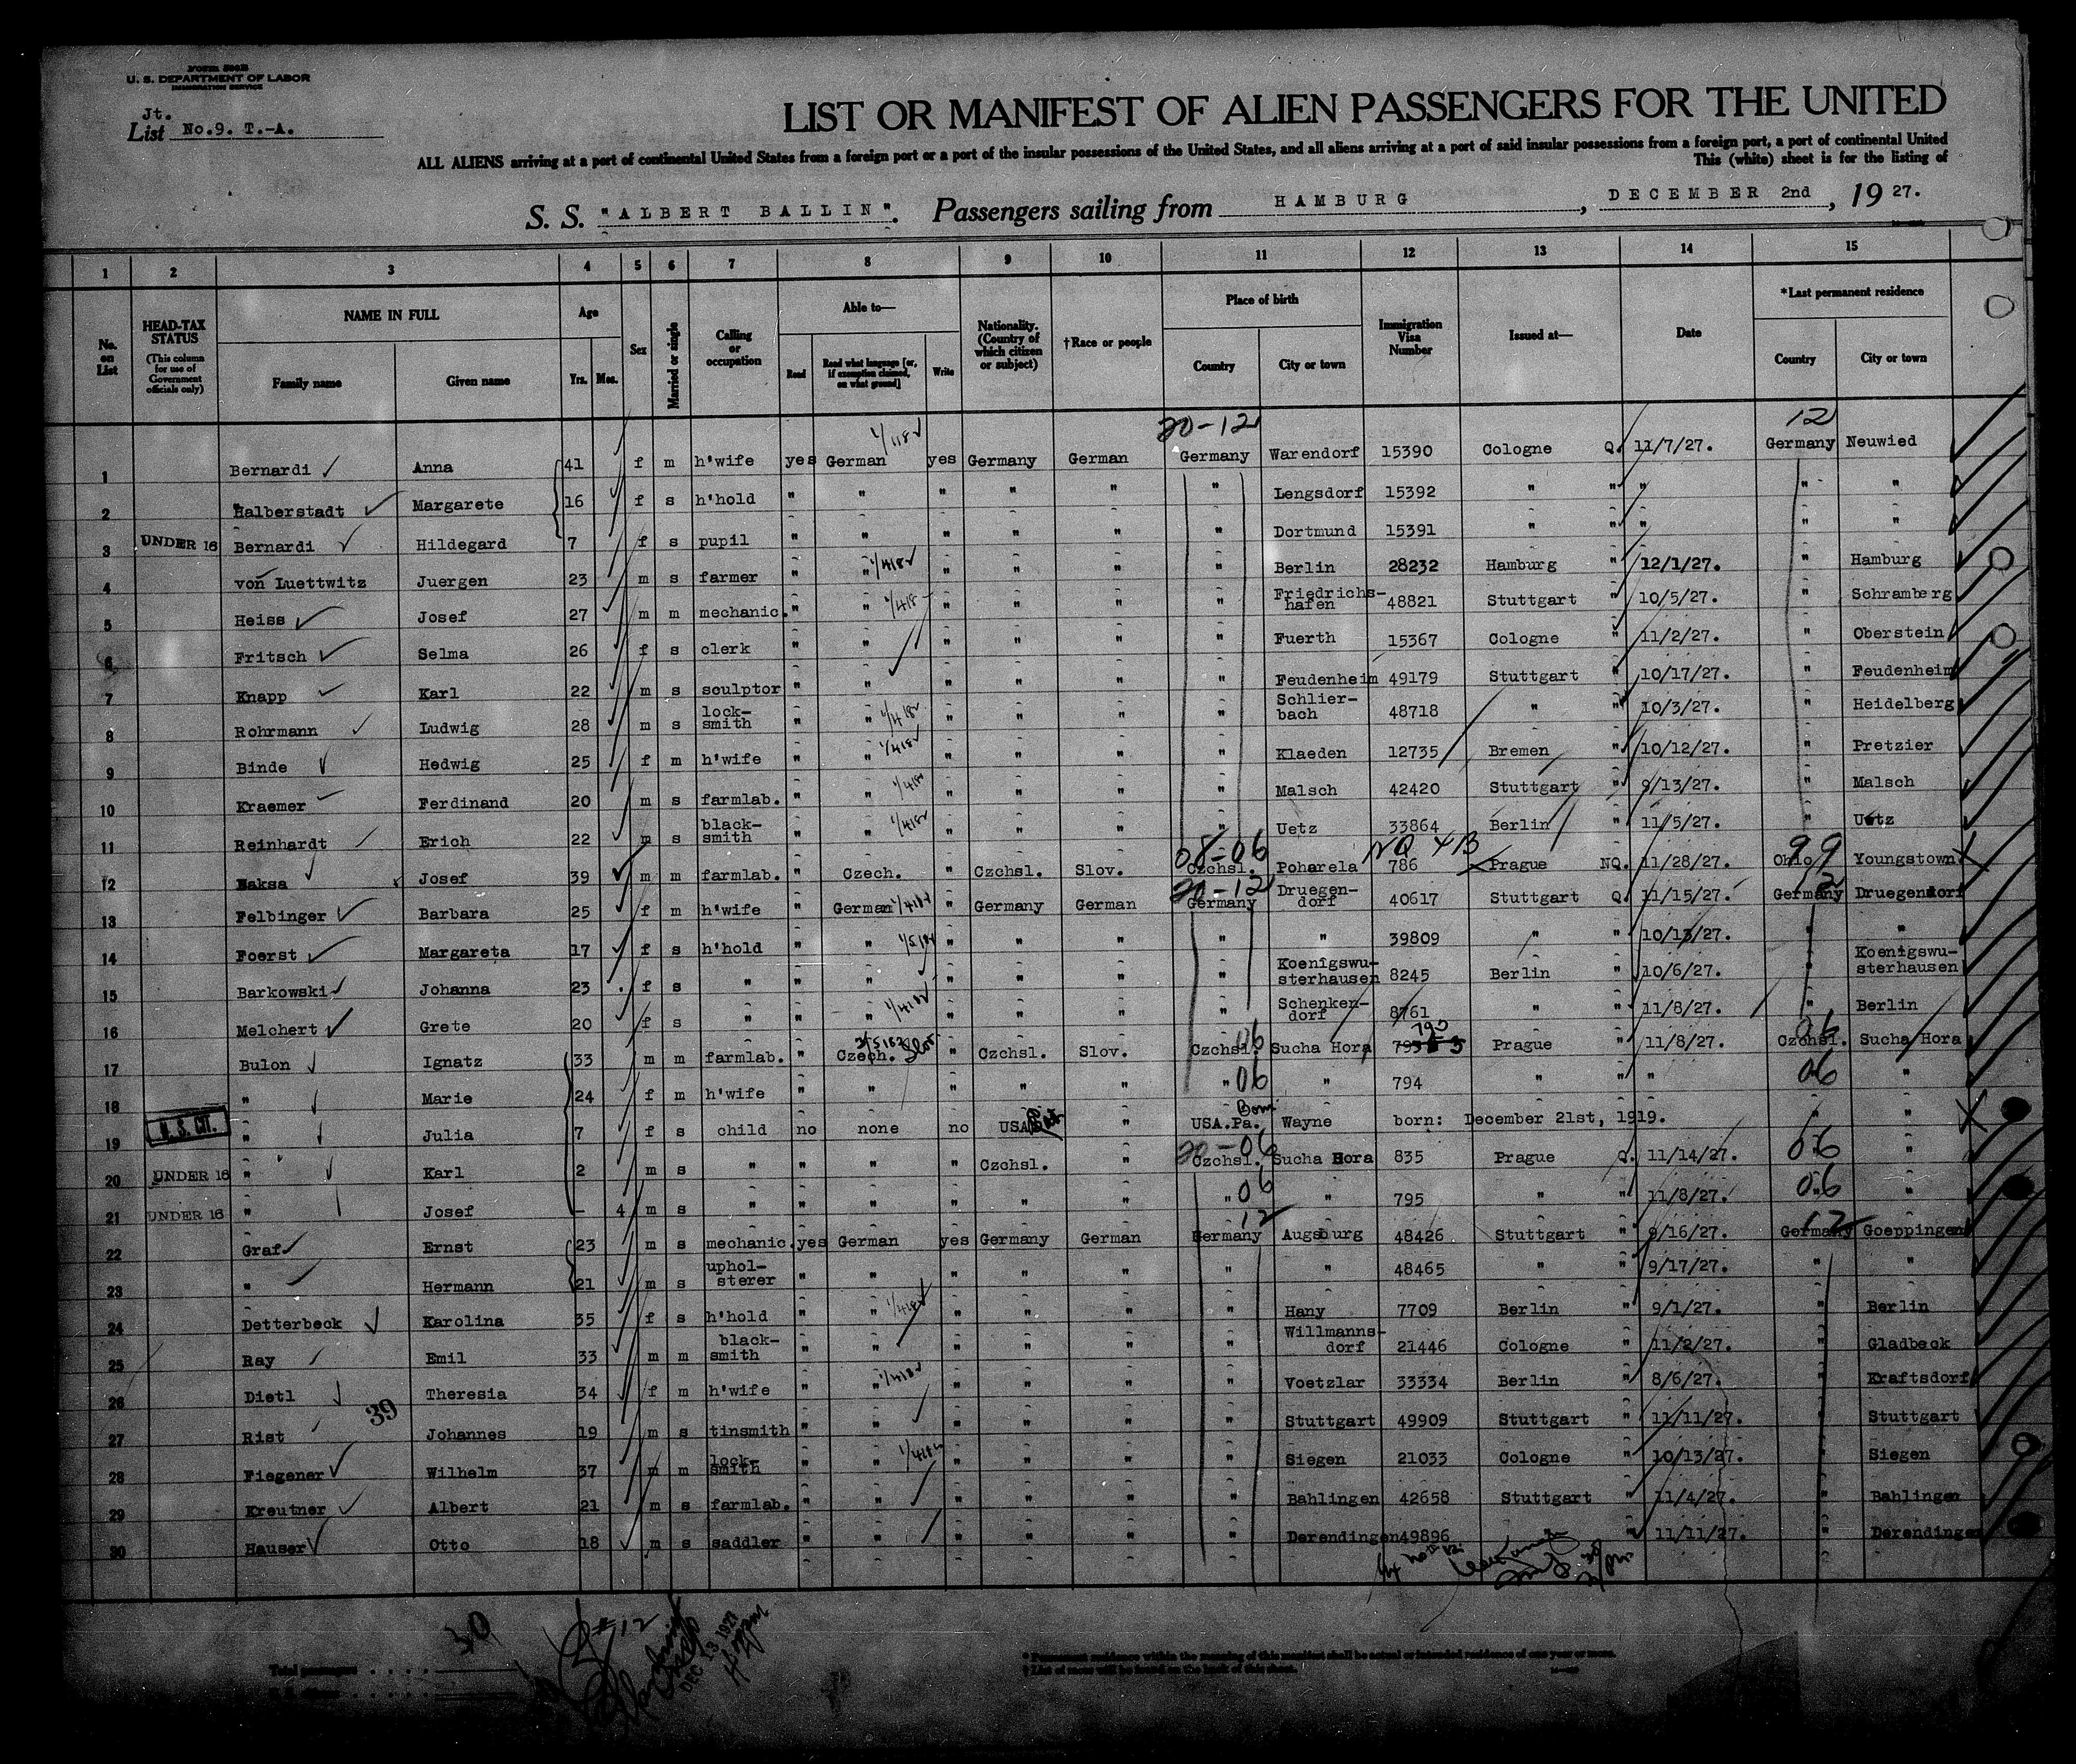 Form 500B
U. S. DEPARTMENT OF LABOR
IMMIGRATION SERVICE
Jt.
List No.9. T.-A.
LIST OR MANIFEST OF ALIEN PASSENGERS FOR THE UNITED
ALL ALIENS arriving at a port of continental United States from a foreign port or a port of the insular possessions of the United States, and all aliens arriving at a port of said insular possessions from a foreign port, a port of continental United
This (white) sheet is for the listing of
S. S. "ALBERT BALLIN". Passengers sailing from HAMBURG, DECEMBER 2nd, 1927.
1 2 3 4 5 6 7 8 9 10 11 12 13 14 15
No. on List
HEAD-TAX STATUS (This column for use of Government officials only)
NAME IN FULL Family name Given name
Age Yrs. Mos.
Sex
Married or single
Calling or occupation
Able to— Read Read what language [or, if exemption claimed, on what ground] Write
Nationality. (Country of which citizen or subject)
†Race or people
Place of birth Country City or town
Immigration Visa Number
Issued at—
Date
*Last permanent residence Country City or town
20-12 12
1 Bernardi Anna 41 f m h'wife yes German yes Germany German Germany Warendorf 15390 Cologne Q. 11/7/27. Germany Neuwied
2 Halberstadt Margarete 16 f s h'hold " " " " " " Lengsdorf 15392 " " " " "
3 UNDER 16 Bernardi Hildegard 7 f s pupil " " " " " " Dortmund 15391 " " " " "
4 von Luettwitz Juergen 23 m s farmer " " " " " " Berlin 28232 Hamburg " 12/1/27. " Hamburg
5 Heiss Josef 27 m m mechanic. " " " " " " Friedrichshafen 48821 Stuttgart " 10/5/27. " Schramberg
6 Fritsch Selma 26 f s clerk " " " " " " Fuerth 15367 Cologne " 11/2/27. " Oberstein
7 Knapp Karl 22 m s sculptor " " " " " " Feudenheim 49179 Stuttgart " 10/17/27. " Feudenheim
8 Rohrmann Ludwig 28 m s lock-smith " " " " " " Schlier-bach 48718 " " 10/3/27. " Heidelberg
9 Binde Hedwig 25 f m h'wife " " " " " " Klaeden 12735 Bremen " 10/12/27. " Pretzier
10 Kraemer Ferdinand 20 m s farmlab. " " " " " " Malsch 42420 Stuttgart " 9/13/27. " Malsch
11 Reinhardt Erich 22 m s black-smith " " " " " " Uetz 33864 Berlin " 11/5/27. " Uetz
08-06 NQ 4B 99
12 Maksa Josef 39 m m farmlab. " Czech. " Czchsl. Slov. Czchsl. Poharela 786 Prague NQ. 11/28/27. Ohio Youngstown
20-12 12
13 Felbinger Barbara 25 f m h'wife " German " Germany German Germany Druegen-dorf 40617 Stuttgart Q. 11/15/27. Germany Druegendorf
14 Foerst Margareta 17 f s h'hold " " " " " " " 39809 " " 10/13/27. " "
15 Barkowski Johanna 23 f s " " " " " " " Koenigswu-sterhausen 8245 Berlin " 10/6/27. " Koenigswu-sterhausen
16 Melchert Grete 20 f s " " " " " " " Schenken-dorf 8761 " " 11/8/27. " Berlin
17 Bulon Ignatz 33 m m farmlab. " Czech. Slov " Czchsl. Slov. Czchsl. 06 Sucha Hora 793 Prague " 11/8/27. Czchsl. 06 Sucha Hora
18 " Marie 24 f m h'wife " " " " " " 06 " 794 " " " 06 "
19 U.S. CIT. " Julia 7 f s child no none no USA " USA.Pa. Born Wayne born: December 21st, 1919. " "
20 UNDER 16 " Karl 2 m s " " " " Czchsl. " Czchsl. 20-06 Sucha Hora 835 Prague Q. 11/14/27. 06 "
21 UNDER 16 " Josef - 4 m s " " " " " " " 06 " 795 " " 11/8/27. 06 "
22 Graf Ernst 23 m s mechanic. yes German yes Germany German Germany 12 Augsburg 48426 Stuttgart " 9/16/27. Germany 12 Goeppingen
23 " Hermann 21 m s uphol-sterer " " " " " " " 48465 " " 9/17/27. " "
24 Detterbeck Karolina 35 f s h'hold " " " " " " Hany 7709 Berlin " 9/1/27. " Berlin
25 Ray Emil 33 m m black-smith " " " " " " Willmanns-dorf 21446 Cologne " 11/2/27. " Gladbeck
26 Dietl Theresia 34 f m h'wife " " " " " " Voetzlar 33334 Berlin " 8/6/27. " Kraftsdorf
39
27 Rist Johannes 19 m s tinsmith " " " " " " Stuttgart 49909 Stuttgart " 11/11/27. " Stuttgart
28 Fiegener Wilhelm 37 m m lock-smith " " " " " " Siegen 21033 Cologne " 10/13/27. " Siegen
29 Kreutner Albert 21 m s farmlab. " " " " " " Bahlingen 42658 Stuttgart " 11/4/27. " Bahlingen
30 Hauser Otto 18 m s saddler " " " " " " Derendingen 49896 " 11/11/27. " Derendingen
30
#12
DEC 13 1927
Total passengers
* Permanent residence within the meaning of this manifest shall be actual or intended residence of one year or more.
† List of races will be found on the back of this sheet.